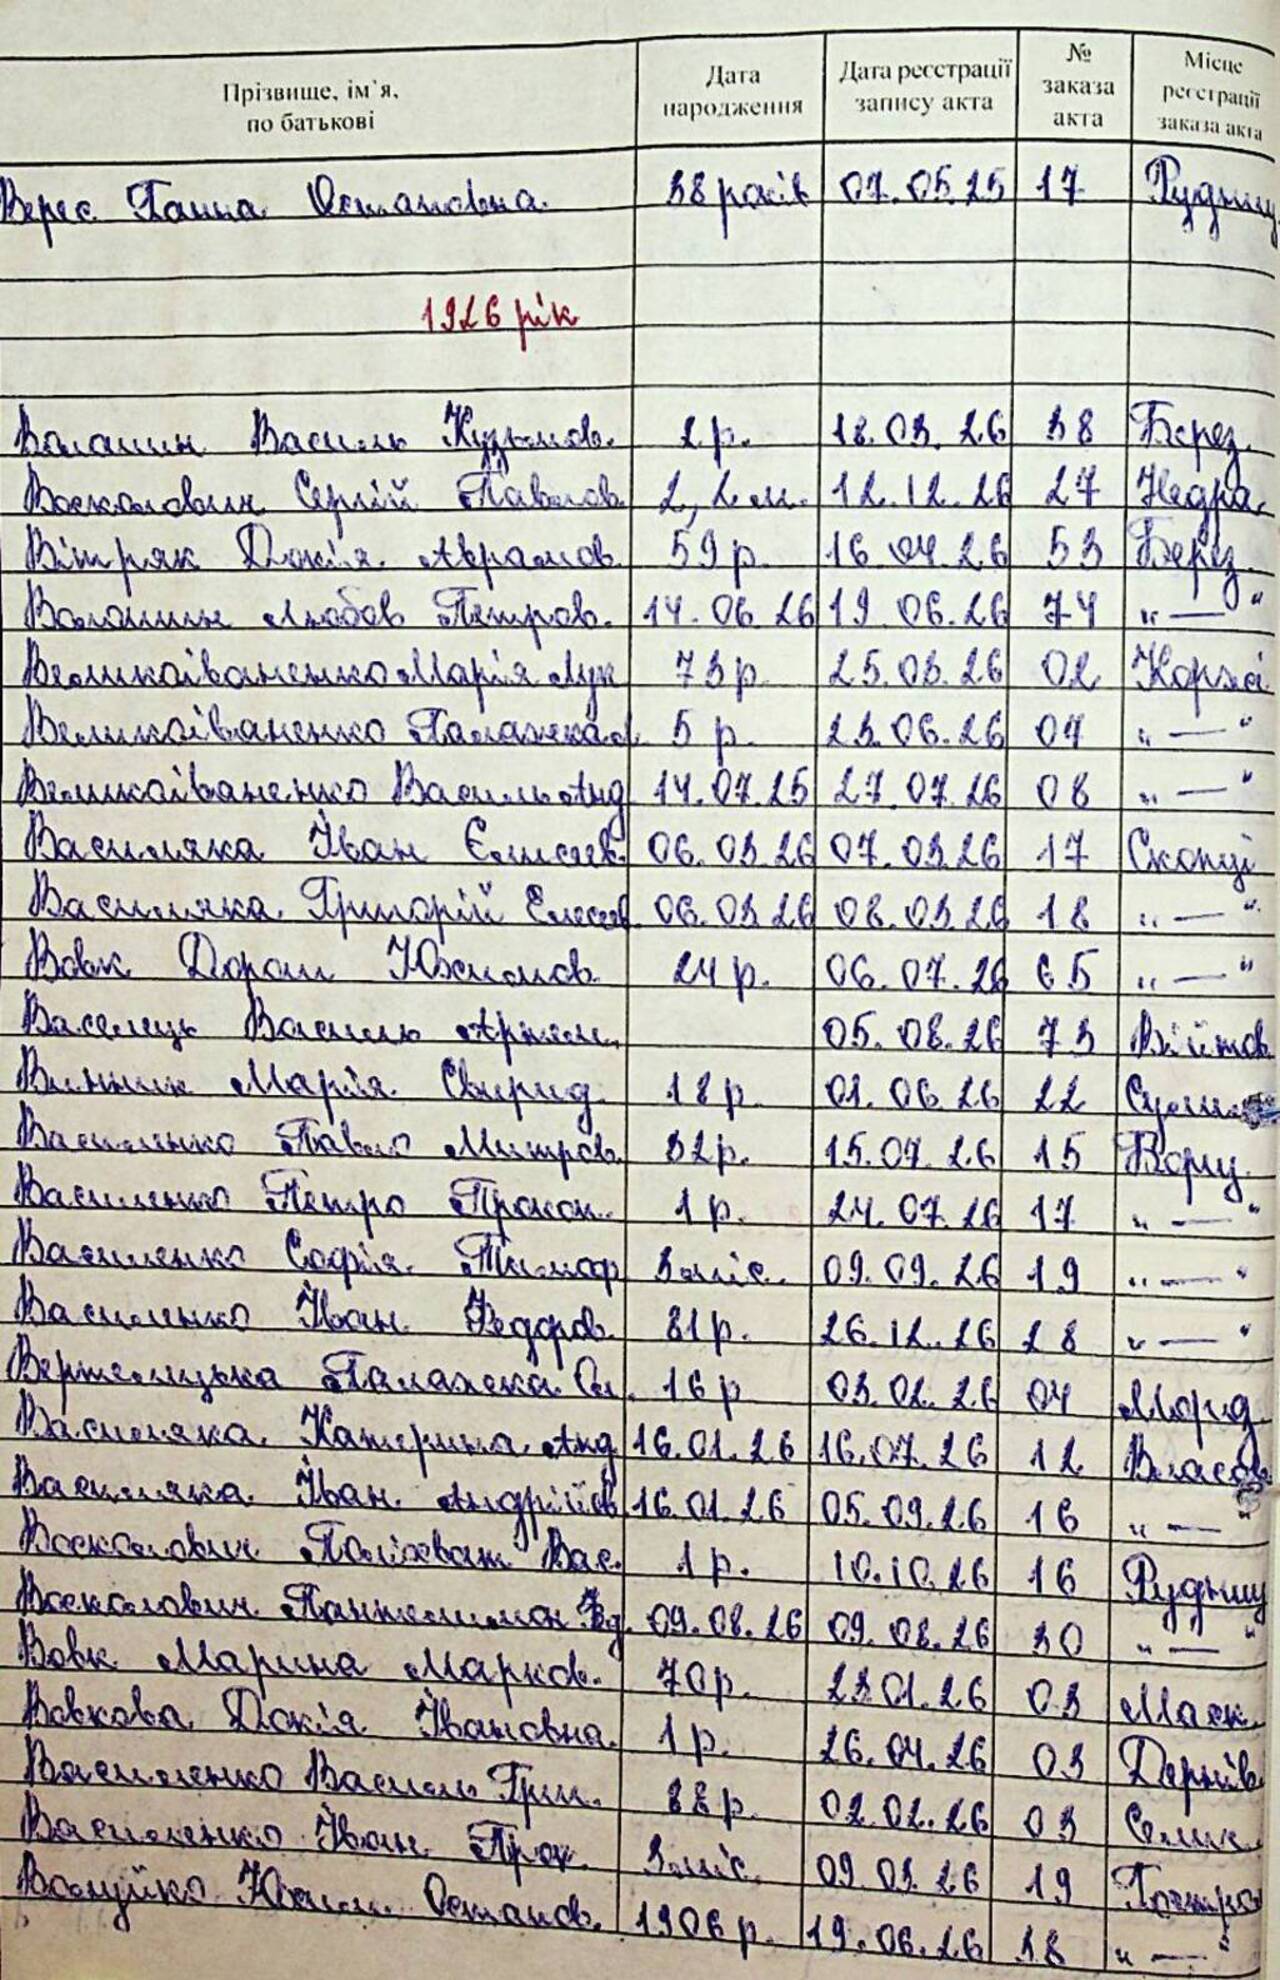 Прізвище, ім'я, по батькові Дата народження Дата реєстрації запису акта № заказа акта Місце реєстрації заказа акта
Верес Ганна Остаповна 38 років 07.05.25 17 Рудниц
1926 рік
Волошин Василь Кузьмов. 2 р. 18.03.26 38 Берез.
Восколович Сергій Павлов. 2, 2 м. 12.12.26 27 Недра.
Вітряк Докія Аврамов. 59 р. 16.04.26 53 Берез.
Волошин Любов Петров. 14.06.26 19.06.26 74 „ — "
Великоіваненко Марія Лук 73 р. 25.03.26 02 Коржі
Великоіваненко Палажка 5 р. 23.06.26 07 „ — "
Великоіваненко Василь Анд 14.07.25 27.07.26 08 „ — "
Василяка Іван Єлисеєв. 06.03.26 07.03.26 17 Скопці
Василяка Григорій Елесеев 06.03.26 08.03.26 18 „ — "
Вовк Дораш Юхимов. 24 р. 06.07.26 65 „ — "
Васелець Василь Артем. 05.08.26 73 Війтов
Винник Марія Свирид. 18 р. 01.06.26 22
Василенко Павло Митров. 32 р. 15.07.26 15 Борщ.
Василенко Петро Прокоп. 1 р. 24.07.26 17 „ — "
Василенко Софія Тимоф 3 міс. 09.09.26 19 „ — "
Василенко Іван Федоров. 81 р. 26.12.26 28 „ — "
Вержелицька Палажка См. 16 р 03.02.26 04 Морид
Василяка Катерина Анд 16.01.26 16.07.26 12 Власов
Василяка Іван Андрійов 16.01.26 05.09.26 16 „ — "
Восколович Полієвкт Вас. 1 р. 10.10.26 16 Рудниц
Восколович Пантелимон Фед. 09.08.26 09.08.26 30 „ — "
Вовк Марина Марков. 70 р. 23.01.26 03 Маск.
Вовкова Докія Івановна. 1 р. 26.04.26 03 Дернів.
Василенко Василь Григ. 88 р. 02.02.26 03 Селик.
Василенко Іван Прок. 3 міс. 09.03.26 19
Валуйко Юхим Остапов. 1906 р. 19.06.26 18 „ — "